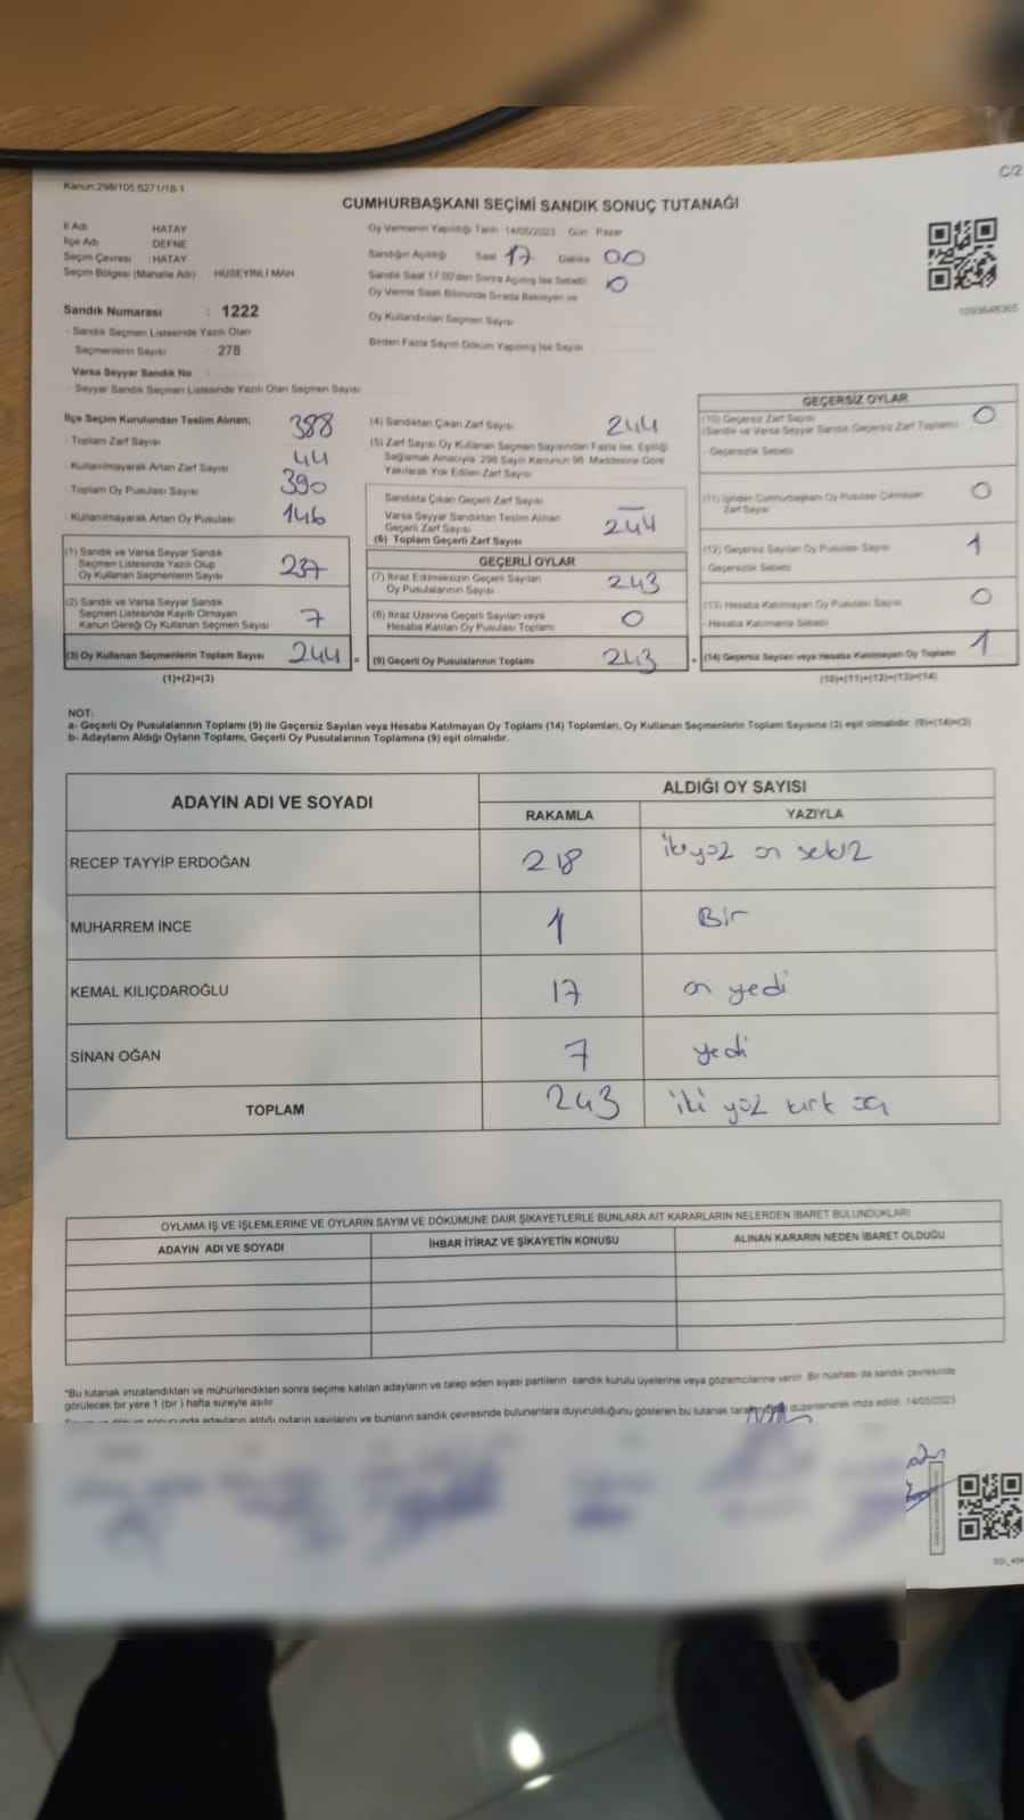 Kanun:298/105 6271/18-1
C/2
CUMHURBAŞKANI SEÇİMİ SANDIK SONUÇ TUTANAĞI
İl Adı HATAY
İlçe Adı DEFNE
Seçim Çevresi : HATAY
Seçim Bölgesi (Mahalle Adı) HÜSEYİNLİ MAH
Sandık Numarası : 1222
Sandık Seçmen Listesinde Yazılı Olan
Seçmenlerin Sayısı 278
Varsa Seyyar Sandık No
Seyyar Sandık Seçmen Listesinde Yazılı Olan Seçmen Sayısı
Oy Vermenin Yapıldığı Tarih 14/05/2023 Gün Pazar
Sandığın Açıldığı Saat 17 Dakika 00
Sandık Saat 17.00'den Sonra Açılmış İse Sebebi 0
Oy Verme Saati Bitiminde Sırada Bekleyen ve
Oy Kullandırılan Seçmen Sayısı
Birden Fazla Sayım Döküm Yapılmış İse Sayısı
İlçe Seçim Kurulundan Teslim Alınan;
Toplam Zarf Sayısı 388
Kullanılmayarak Artan Zarf Sayısı 44
Toplam Oy Pusulası Sayısı 390
Kullanılmayarak Artan Oy Pusulası 146
(1) Sandık ve Varsa Seyyar Sandık
Seçmen Listesinde Yazılı Olup
Oy Kullanan Seçmenlerin Sayısı 237
(2) Sandık ve Varsa Seyyar Sandık
Seçmen Listesinde Kayıtlı Olmayan
Kanun Gereği Oy Kullanan Seçmen Sayısı 7
(3) Oy Kullanan Seçmenlerin Toplam Sayısı 244 =
(1)+(2)=(3)
(4) Sandıktan Çıkan Zarf Sayısı 244
(5) Zarf Sayısı Oy Kullanan Seçmen Sayısından Fazla İse, Eşitliği
Sağlamak Amacıyla 298 Sayılı Kanunun 98. Maddesine Göre
Yakılarak Yok Edilen Zarf Sayısı
Sandıkta Çıkan Geçerli Zarf Sayısı —
Varsa Seyyar Sandıktan Teslim Alınan
Geçerli Zarf Sayısı
(6) Toplam Geçerli Zarf Sayısı 244
GEÇERLİ OYLAR
(7) İtiraz Edilmeksizin Geçerli Sayılan
Oy Pusulalarının Sayısı 243
(8) İtiraz Üzerine Geçerli Sayılan veya
Hesaba Katılan Oy Pusulası Toplamı 0
(9) Geçerli Oy Pusulalarının Toplamı 243 +
GEÇERSİZ OYLAR
(10) Geçersiz Zarf Sayısı 0
(Sandık ve Varsa Seyyar Sandık Geçersiz Zarf Toplamı)
Geçersizlik Sebebi
(11) İçinden Cumhurbaşkanı Oy Pusulası Çıkmayan
Zarf Sayısı 0
(12) Geçersiz Sayılan Oy Pusulası Sayısı 1
Geçersizlik Sebebi
(13) Hesaba Katılmayan Oy Pusulası Sayısı 0
Hesaba Katılmama Sebebi
(14) Geçersiz Sayılan veya Hesaba Katılmayan Oy Toplamı 1
(10)+(11)+(12)+(13)=(14)
NOT:
a- Geçerli Oy Pusulalarının Toplamı (9) ile Geçersiz Sayılan veya Hesaba Katılmayan Oy Toplamı (14) Toplamları, Oy Kullanan Seçmenlerin Toplam Sayısına (3) eşit olmalıdır. (9)+(14)=(3)
b- Adayların Aldığı Oyların Toplamı, Geçerli Oy Pusulalarının Toplamına (9) eşit olmalıdır.
ADAYIN ADI VE SOYADI ALDIĞI OY SAYISI
RAKAMLA YAZIYLA
RECEP TAYYİP ERDOĞAN 218 ikiyüz on sekiz
MUHARREM İNCE 1 Bir
KEMAL KILIÇDAROĞLU 17 on yedi
SİNAN OĞAN 7 yedi
TOPLAM 243 iki yüz kırk üç
OYLAMA İŞ VE İŞLEMLERİNE VE OYLARIN SAYIM VE DÖKÜMÜNE DAİR ŞİKAYETLERLE BUNLARA AİT KARARLARIN NELERDEN İBARET BULUNDUKLARI
ADAYIN ADI VE SOYADI İHBAR İTİRAZ VE ŞİKAYETİN KONUSU ALINAN KARARIN NEDEN İBARET OLDUĞU
"Bu tutanak imzalandıktan ve mühürlendikten sonra seçime katılan adayların ve talep eden siyasi partilerin sandık kurulu üyelerine veya gözlemcilerine verilir. Bir nüshası da sandık çevresinde
görülecek bir yere 1 (bir) hafta süreyle asılır.
adayların aldığı oyların sayılarını ve bunların sandık çevresinde bulunanlara duyurulduğunu gösteren bu tutanak düzenlenerek imza edildi. 14/05/2023